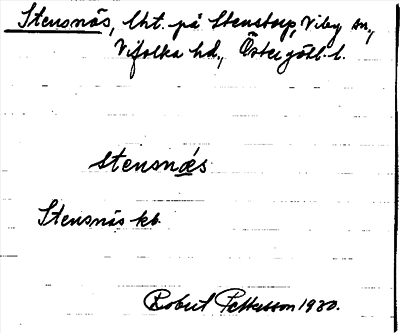 Stensnäs, lht. på Stenstorp, Viby sn,
Vifolka hd., Östergötl. l.
stensnǽs
Stensnäs kb.
Robert Pettersson 1930.